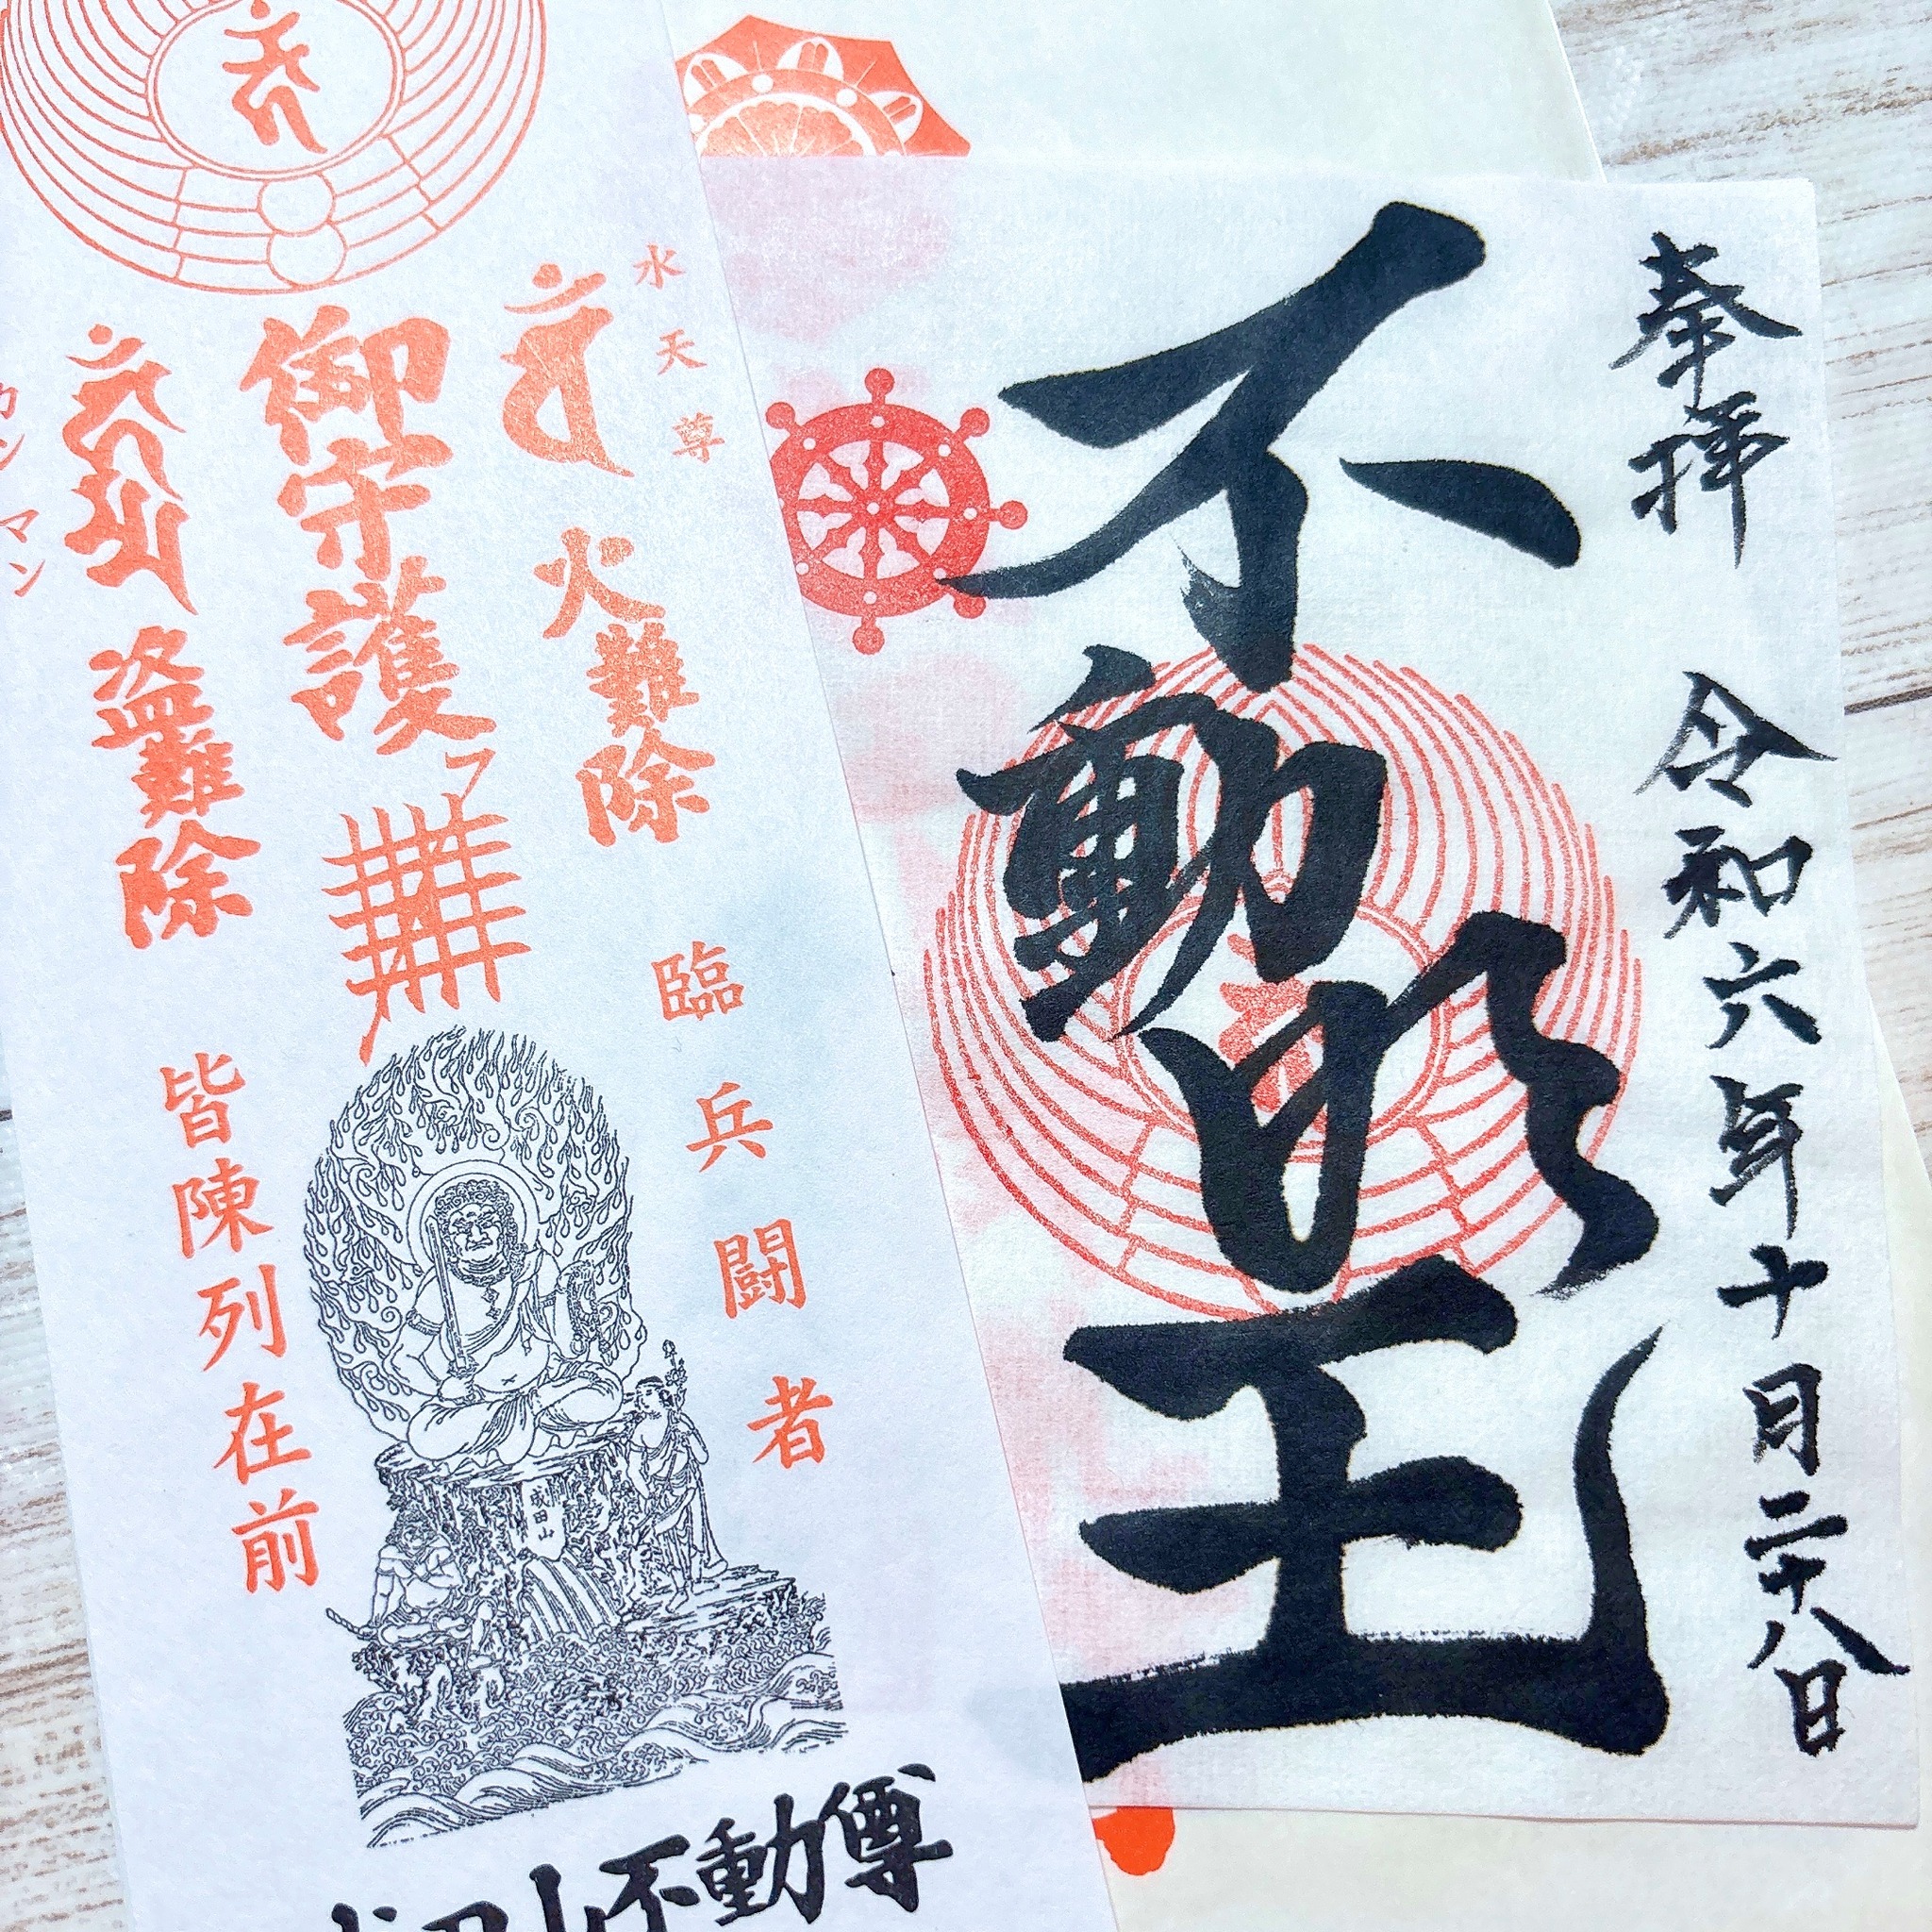 奉拝
令和六年十月二十八日
不動明王
水天尊
火難除
御守護
盗難除
カンマン
臨兵闘者
皆陳列在前
成田山
不動尊